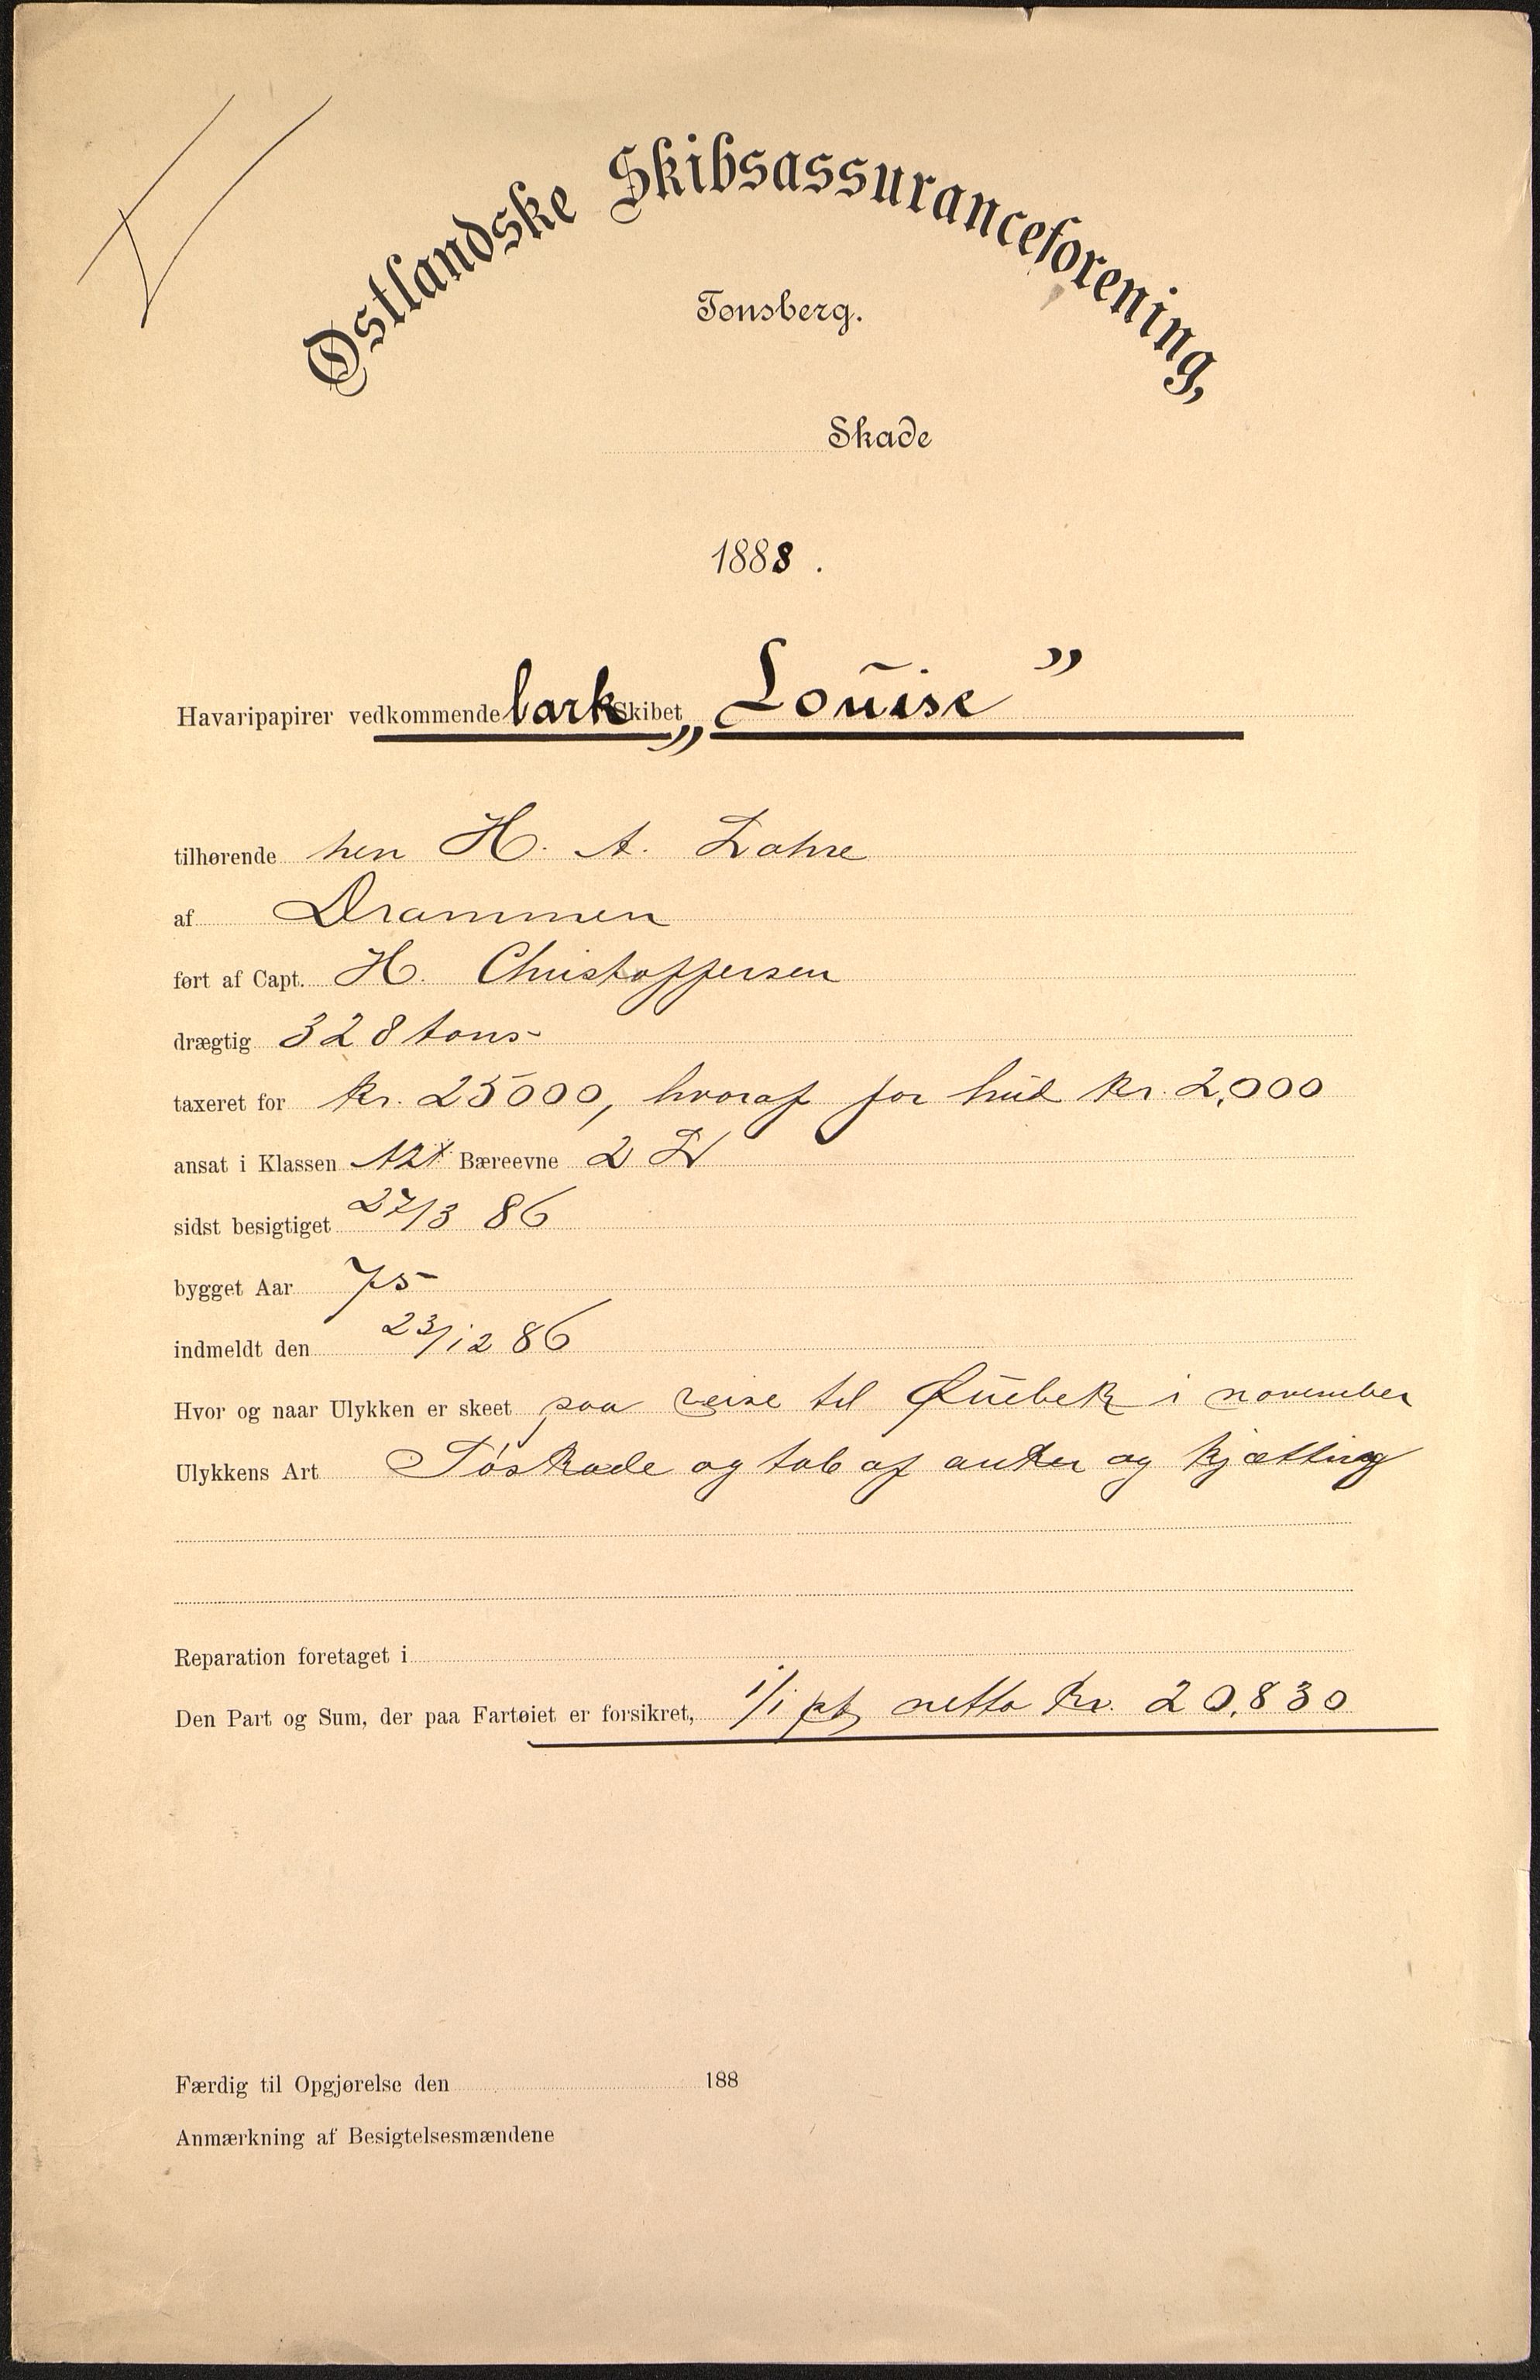 Østlandske Skibsassuranceforening,
Tønsberg.
Skade
1888.
Havaripapirer vedkommende barkSkibet „Louise”
tilhørende herr H. A. Lahre
af Drammen
ført af Capt. H. Christoffersen
drægtig 328 tons
taxeret for kr. 25000, hvoraf for hud kr. 2,000
ansat i Klassen Bæreevne 2 L
sidst besigtiget 27/3 86
bygget Aar 75
indmeldt den 23/12 86
Hvor og naar Ulykken er skeet paa reise til Quebek i november
Ulykkens Art Søskade og tab af anker og kjætting
Reparation foretaget i
Den Part og Sum, der paa Fartøiet er forsikret, 1/1 pt netto kr. 20,830
Færdig til Opgjørelse den 188
Anmærkning af Besigtelsesmændene